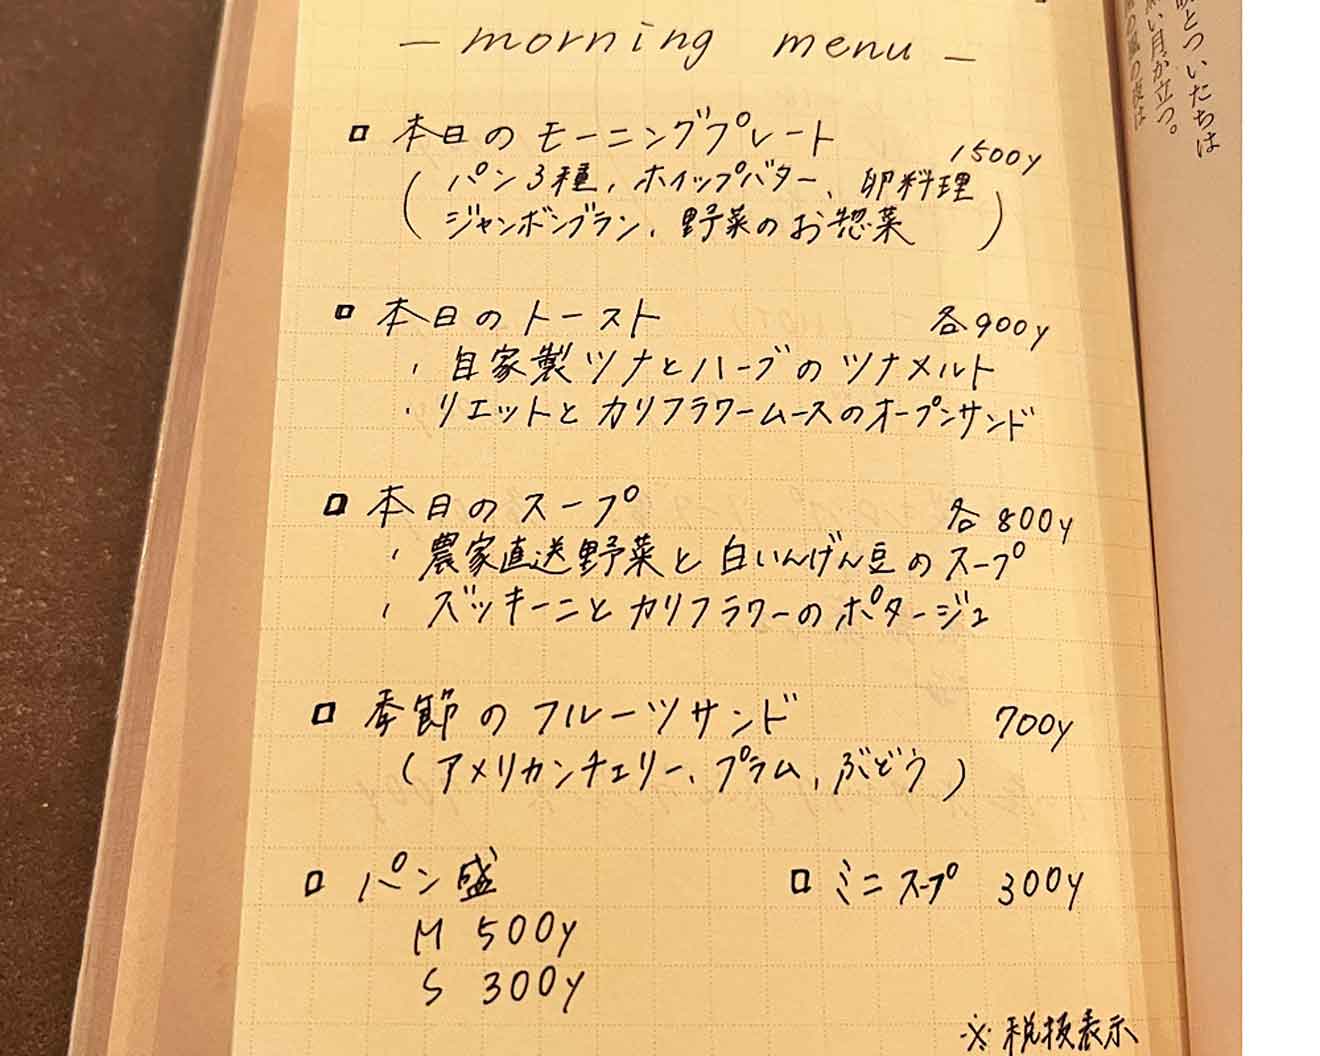 — morning menu —
□ 本日のモーニングプレート 1500y
( パン3種、ホイップバター、卵料理
ジャンボンブラン、野菜のお惣菜 )
□ 本日のトースト 各900y
・自家製ツナとハーブのツナメルト
・リエットとカリフラワームースのオープンサンド
□ 本日のスープ 各800y
・農家直送野菜と白いんげん豆のスープ
・ズッキーニとカリフラワーのポタージュ
□ 季節のフルーツサンド 700y
(アメリカンチェリー、プラム、ぶどう)
□ パン盛
M 500y
S 300y
□ ミニスープ 300y
※税抜表示
とついたちは
い月が立つ。